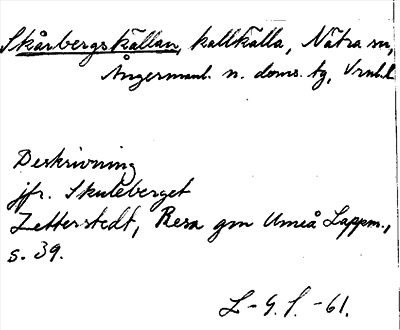 Skårbergskällan, kallkälla, Nätra sn,
Ångermanl. n. doms. tg, Vrnl.
Deskrivning
jfr. Skuleberget
Zetterstedt, Resa gm Umeå Lappm.,
s. 39.
L-G. L. -61.